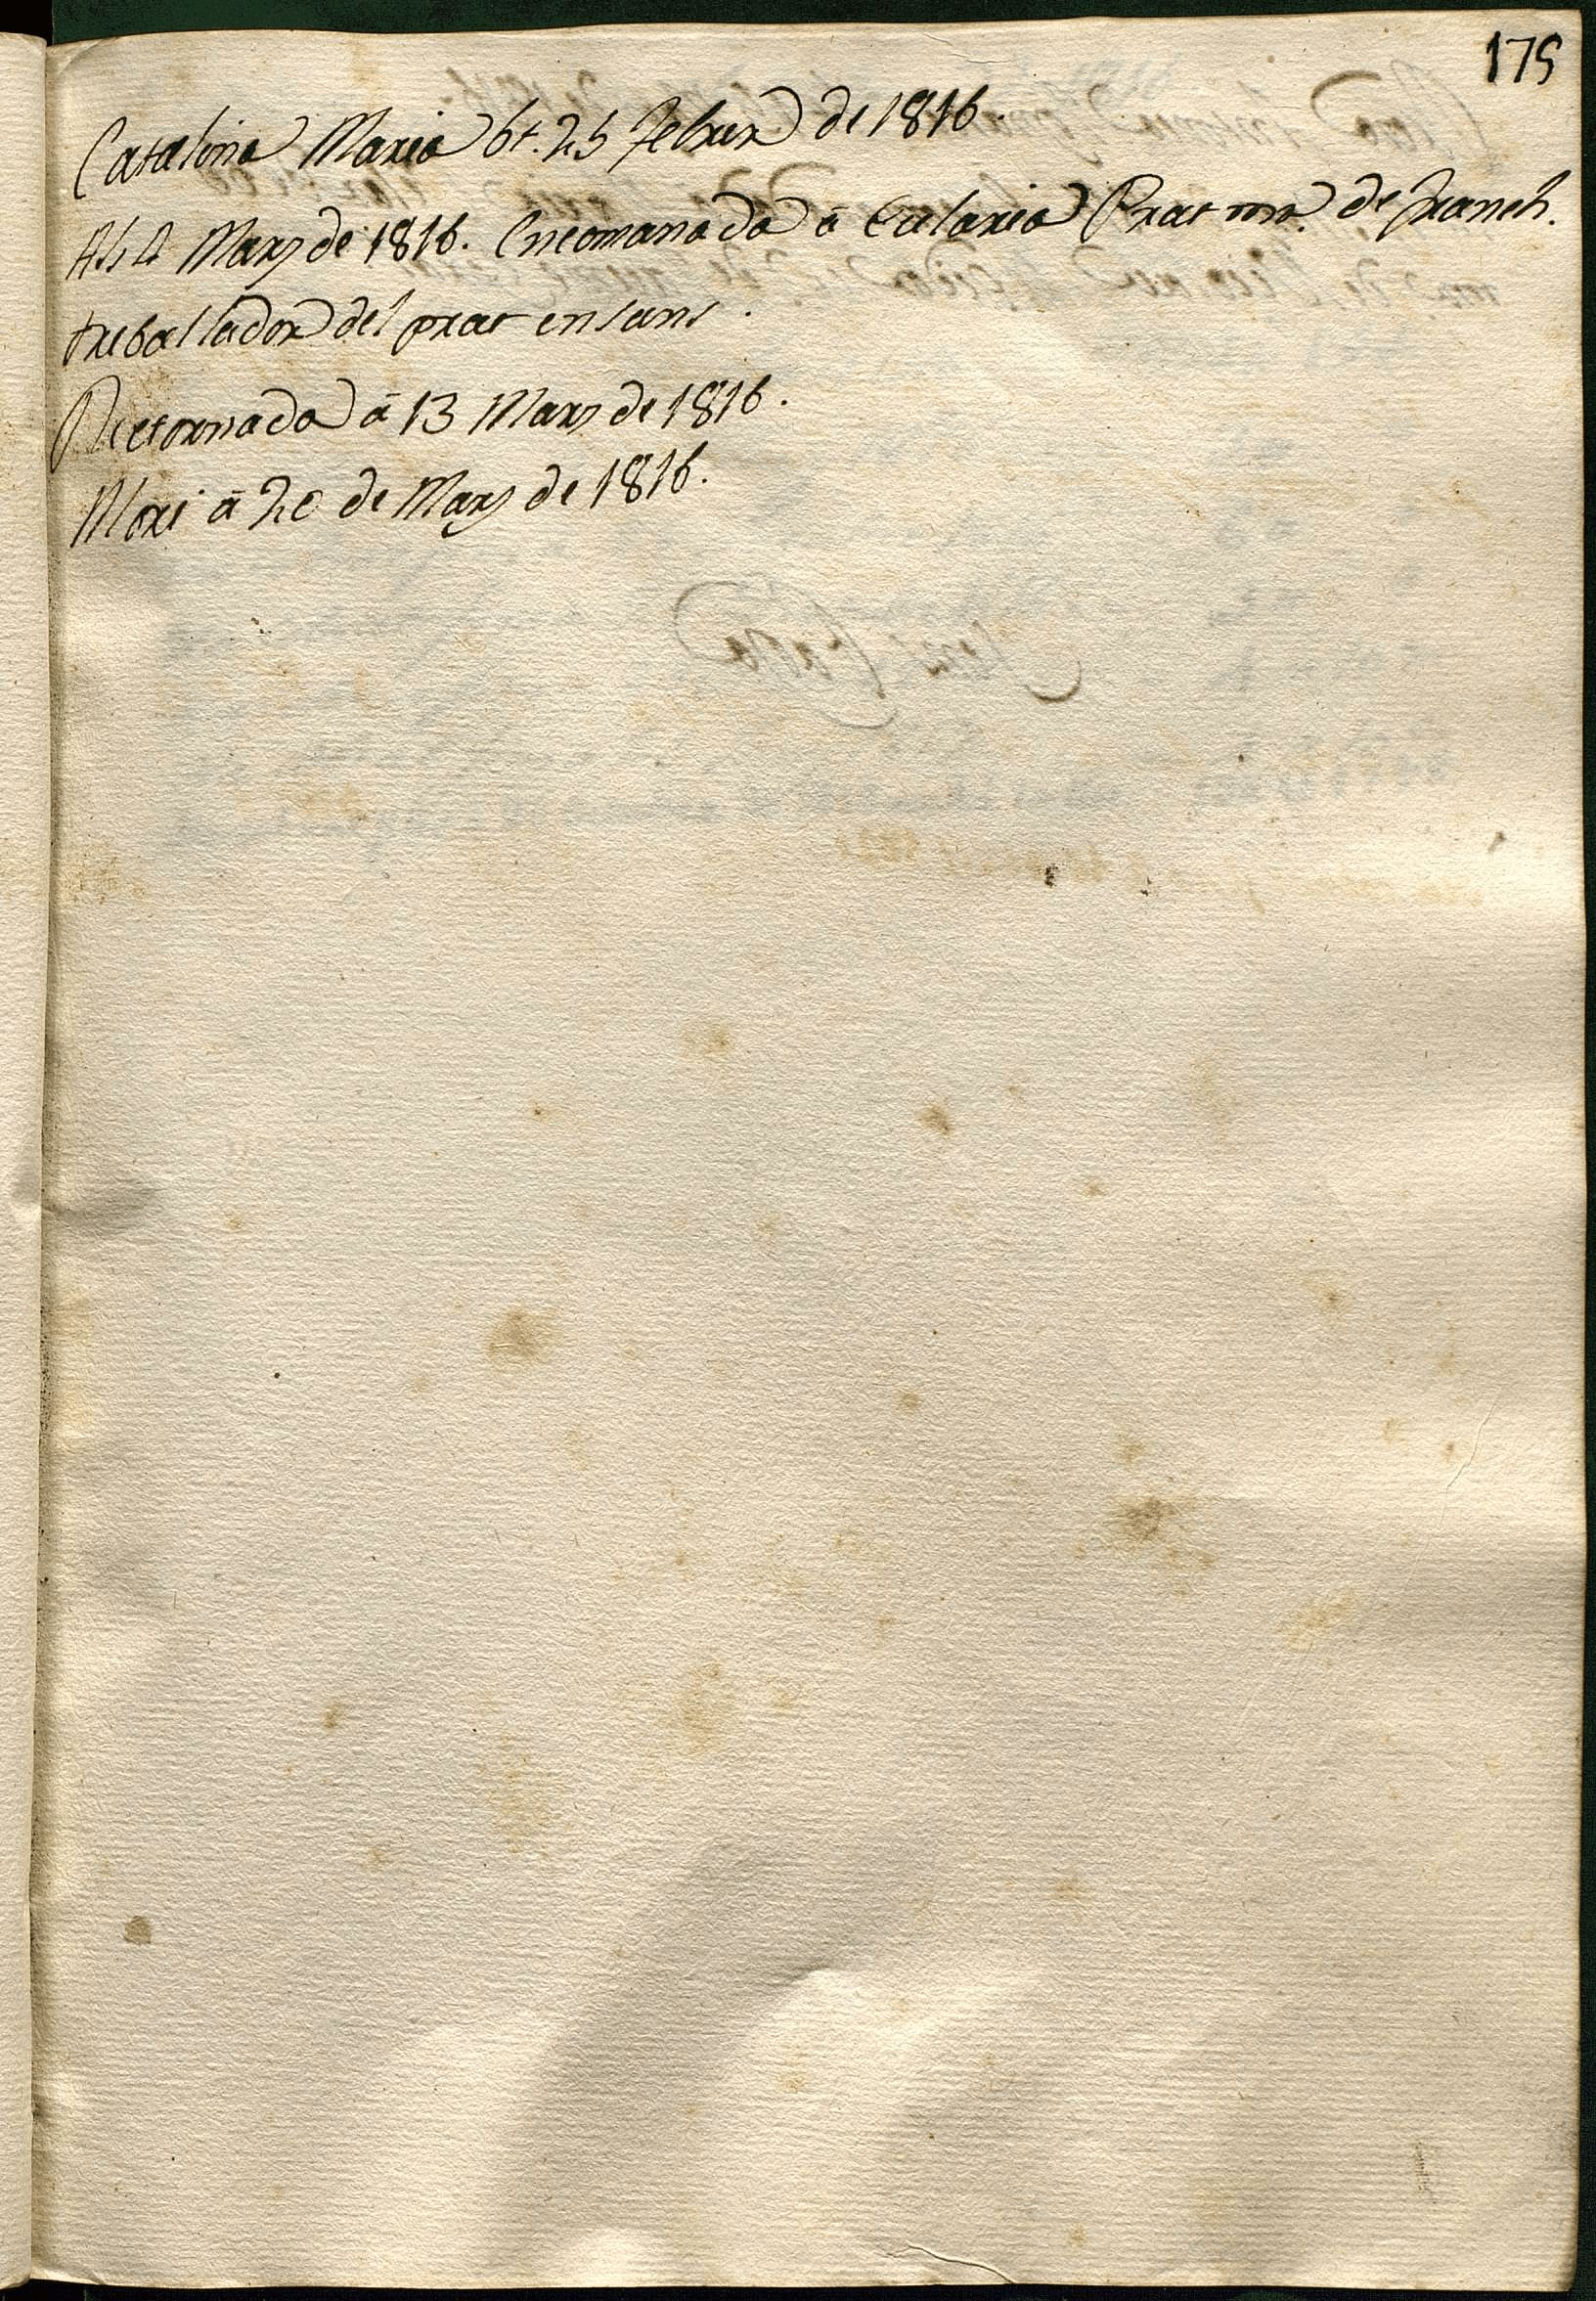 175
Catalina Maria bt. 25 Febrer de 1816.
Als 4 Mars de 1816. Encomanada â Eularia Prat mr. de Franch.
treballador del prat en sans.
Retornada â 13 Mars de 1816.
Mori â 20 de Mars de 1816.